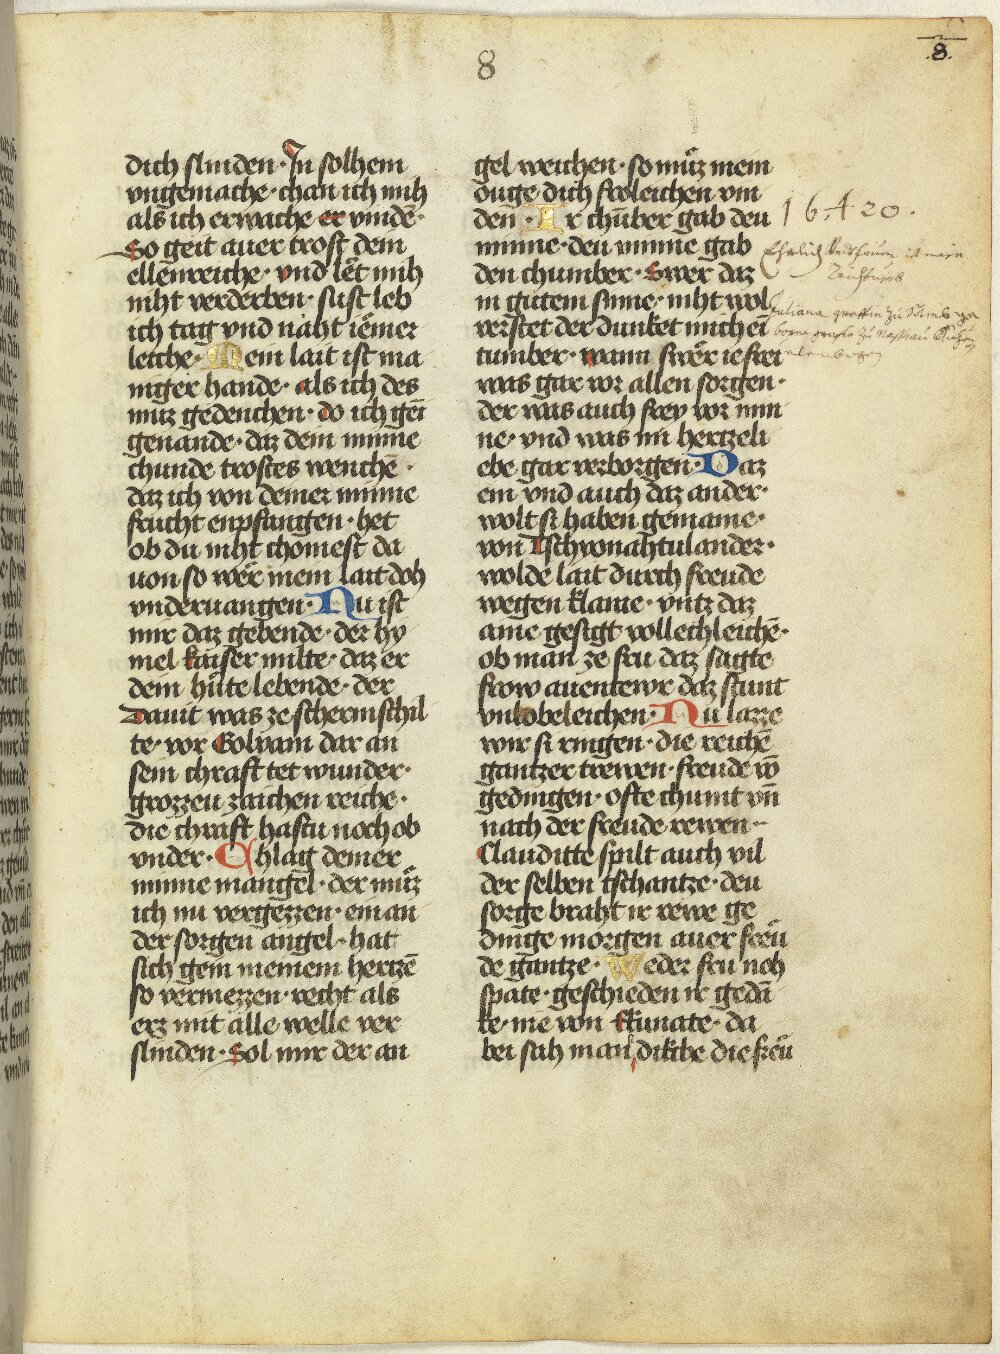 8
.8.
dich slinden · In solhem
vngemache · chan ich mih
als ich erwache er vindē ·
So geit auer trost dem
ellenreiche · vnd lët mih
niht verderben · sust leb
ich tag vnd naht iëmer
leiche · Mein lait ist ma
niger hande · als ich des
muz gedenchen · do ich gēn
genande · daz dein minne
chunde trostes wenchē ·
daz ich von deiner minne
frucht enpfangen · het
ob du niht chomest da
uon so wër mein lait doh
vnderuangen · Nu ist
mir daz gebende · der hy
mel kaiser milte · daz er
dem hüte lebende · der
Dauit was ze scherm schil
te · vor Golyam dar an
sein chraft tet wunder ·
grozzeu zaichen reiche ·
die chraft hastu noch ob
vnder · Chlag deiner
minne mangel · der müz
ich nu vergezzen · ein an
der sorgen angel · hat
sich gein meinem hertzē
so vermezzen · recht als
erz mit alle welle ver
slinden · Sol mir der an
gel weichen · so müz mein
ouge dich froleichen vin
den · Ir chūber gab deu
minne · deu minne gab
den chumber · Swer daz
in gutem sinne · niht wol
verstet der dunket mich ei
tumber · wann swër ie frei
was gar vor allen sorgen ·
der was auch frey vor min
ne · vnd was im hertzeli
ebe gar verborgen · Daz
ein vnd auch daz ander ·
wolt si haben gemaine ·
von Tschyonahtulander ·
wolde lait durch freude
wegen klaine · vntz daz
aine gesigt vollechleichē ·
ob man ze fru daz sagte
frow auentewr daz stunt
vnlobeleichen · Nu lazze
wir si ringen · die reichē
gantzer trewen · freude vō
gedingen · ofte chumt vn̄
nach der freude rewen ··
Clauditte spilt auch vil
der selben tschantze · deu
sorge braht ir rewe ge
dinge morgen auer freü
de gantze · Weder fru noh
spate · geschieden ir gedā
ke · nie von Ekunate · da
bei sah man dikche die freü
16 · A · 20 ·
Ehrlich
Juliana greffin zu